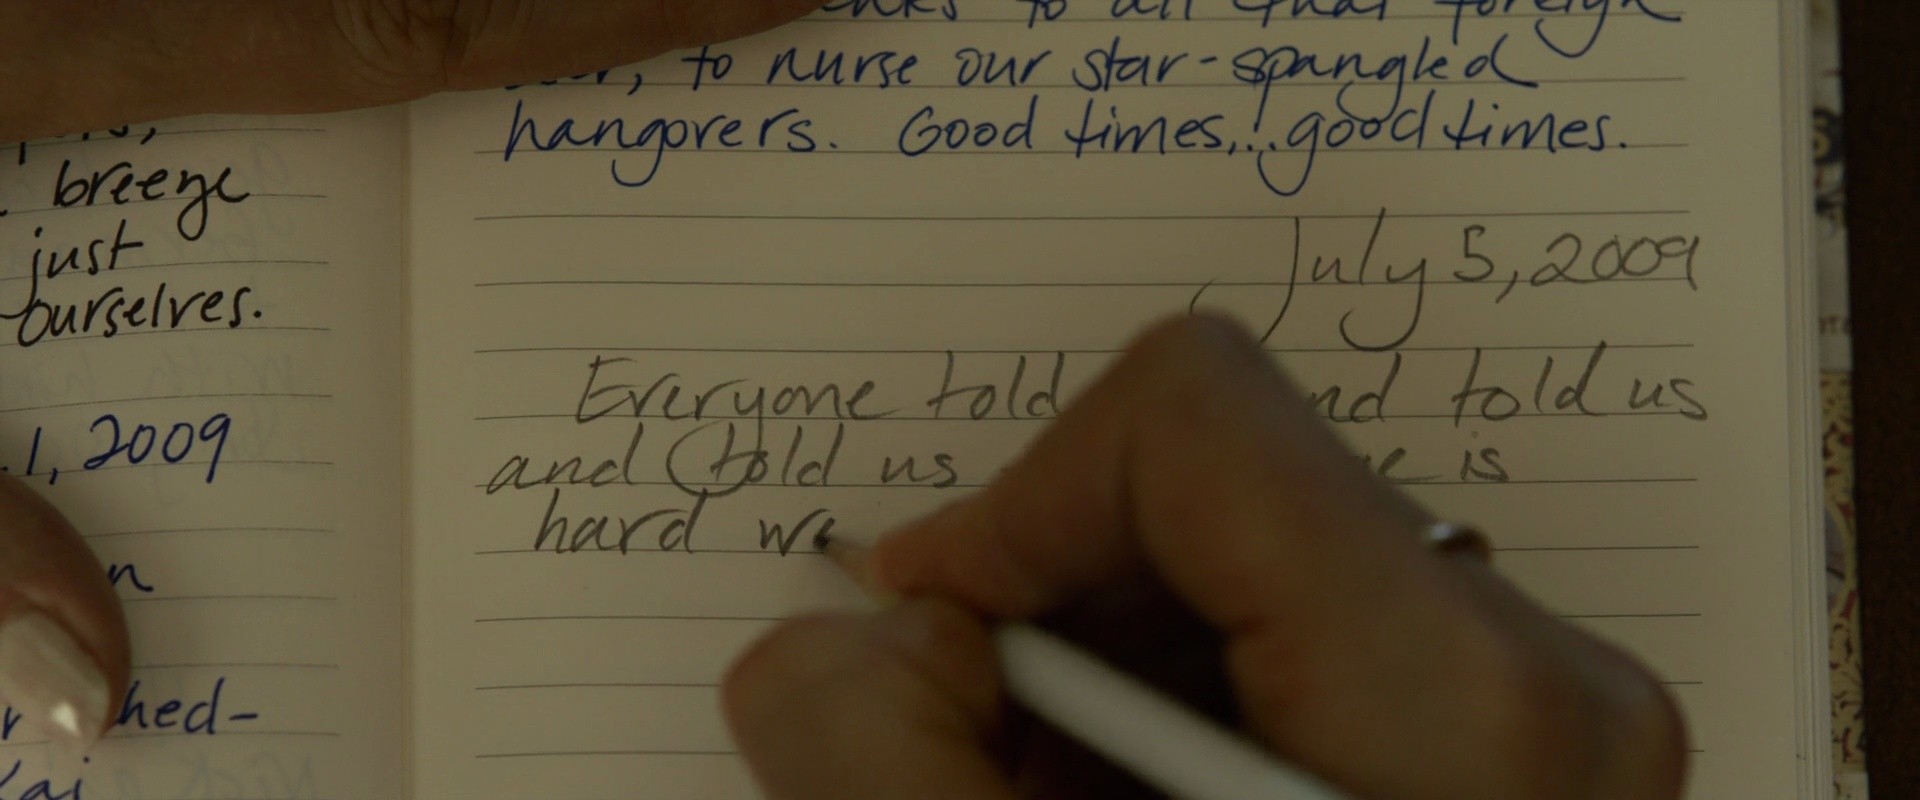 breeze
just
ourselves.
1, 2009
hed-
to all that foreign
to nurse our star-spangled
hangovers. Good times...good times.
July 5, 2009
Everyone told told us
and told us is
hard